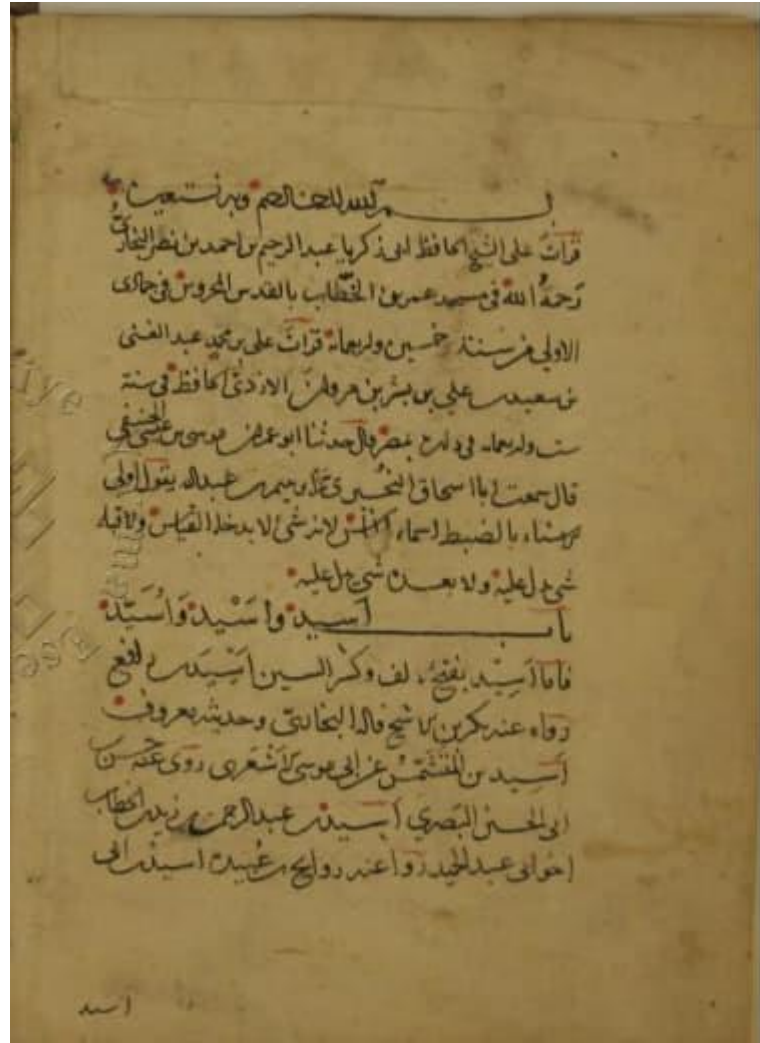 بسم الله الرحمن الرحيم وبه نستعين
قرأت على الشيخ الحافظ ابى زكريا عبد الرحيم بن احمد بن نصر البخارى
رحمه الله فى مسجد عمر بن الخطاب بالقدس المحروس فى جمادى
الاولى من سنة خمسين واربعمائة قرأت على بن محمد عبد الغنى
بن سعيد بن على بن بشر بن مروان الازدى الحافظ فى سنة
ست واربعمائة فى داره بمصر قال حدثنا ابو عمران موسى بن عيسى الحنيفى
قال سمعت ابا اسحاق النجيرمى ابراهيم بن عبد الله يقول اولى
الاشياء بالضبط اسماء الناس لانه شئ لا يدخله القياس ولا قبله
شئ دل عليه ولا بعده شئ دل عليه
باب اَسِيد واُسَيْد وَاُسَيِّد
فاما اَسِيْد بفتح الالف وكسر السين اَسِيد بن رافع
رواه عنه بكير بن الاشج قاله البخارى وحديثه معروف
اَسِيد بن المتشمس عن ابى موسى الاشعرى روى عنه حسن بن
ابى الحسن البصري اسيد بن عبد الرحمن بن زيد بن الخطاب
اخو ابى عبد الحميد روا عنه رواية بن عبيدة اسيد بن ابى
اسيد